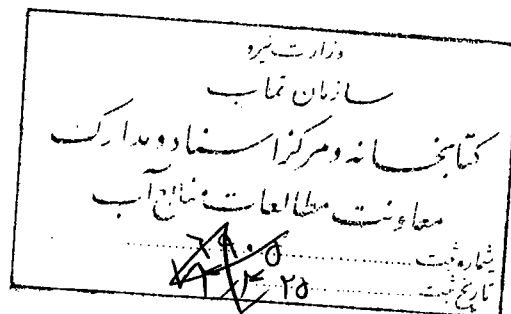 وزارت نیرو
سازمان تماب
کتابخانه و مرکز اسناد و مدارک
معاونت مطالعات منابع آب
شماره ثبت
تاریخ ثبت